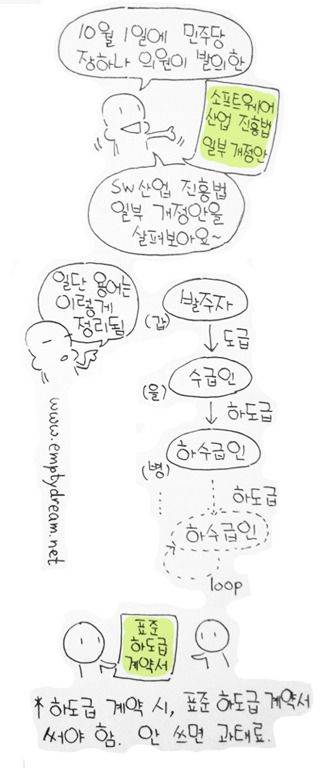 10월 1일에 민주당
장하나 의원이 발의한
소프트웨어
산업 진흥법
일부 개정안
SW산업 진흥법
일부 개정안을
살펴보아요~
일단 용어는
이렇게
정리됨
(갑)
발주자
도급
(을)
수급인
하도급
(병)
하수급인
하도급
하수급인
loop
www.emptydream.net
표준
하도급
계약서
*하도급 계약 시, 표준 하도급 계약서
써야 함. 안 쓰면 과태료.